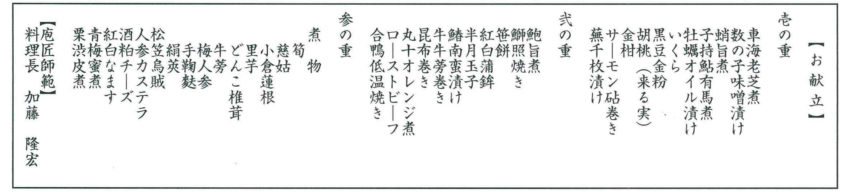 【お献立】
壱の重
車海老芝煮
数の子味噌漬け
蛸旨煮
子持鮎有馬煮
牡蠣オイル漬け
いくら
黒豆金粉
胡桃（来る実）
金柑
サーモン砧巻き
蕪千枚漬け
弐の重
鮑旨煮
鰤照焼き
笹餅
紅白蒲鉾
半月玉子
鰆南蛮漬け
牛牛蒡巻き
昆布巻き
丸十オレンジ煮
ローストビーフ
合鴨低温焼き
参の重
煮物
筍
慈姑
小倉蓮根
里芋
どんこ椎茸
牛蒡
梅人参
手鞠麩
絹莢
松笠烏賊
人参カステラ
酒粕チーズ
紅白なます
青梅蜜煮
栗渋皮煮
【庖匠師範】
料理長 加藤 隆宏